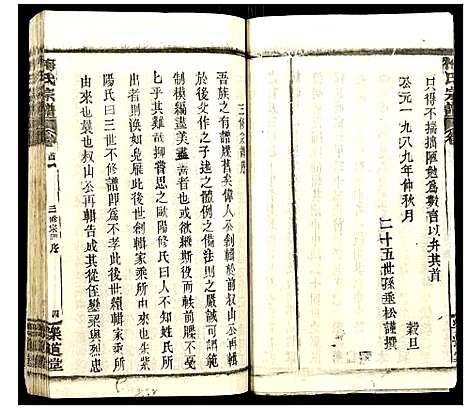 梅氏宗譜
只得不揣擣陋勉為數言以弁其首
公元一九八九年仲秋月
穀旦
二十五世孫垂松謹撰
三修宗譜序
吾族之有譜歲舊矣偉人公創輯於前叔山公再輯
於後文作之子述之體例之備法則之嚴誠可謂範
制模編盡美盡善者矣欲繼斯後而軼前塵不
匕乎其難哉抑思之歐陽修氏曰人不知姓氏所
由來斯禽鳥雁此後世創輯家乘所由來也紫
陽氏曰三世不修譜即為不孝此後世續輯家乘所
由來也曩也叔山公再輯告成其從侄鑾梁與烈忠
梅氏宗譜
卷首
三修宗譜序
四
樂道堂